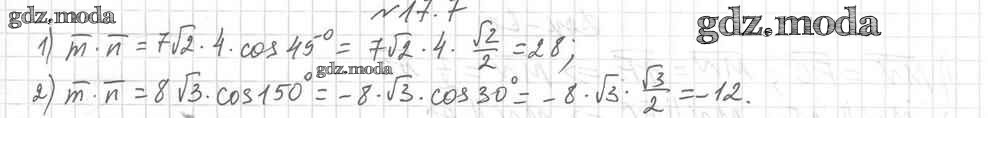 gdz.moda
№17.7
gdz.moda
1) m̅ · n̅ = 7√2 · 4 · cos 45° = 7√2 · 4 · √2/2 = 28;
gdz.moda
2) m̅ · n̅ = 8√3 · cos 150° = -8 · √3 · cos 30° = -8 · √3 · √3/2 = -12.